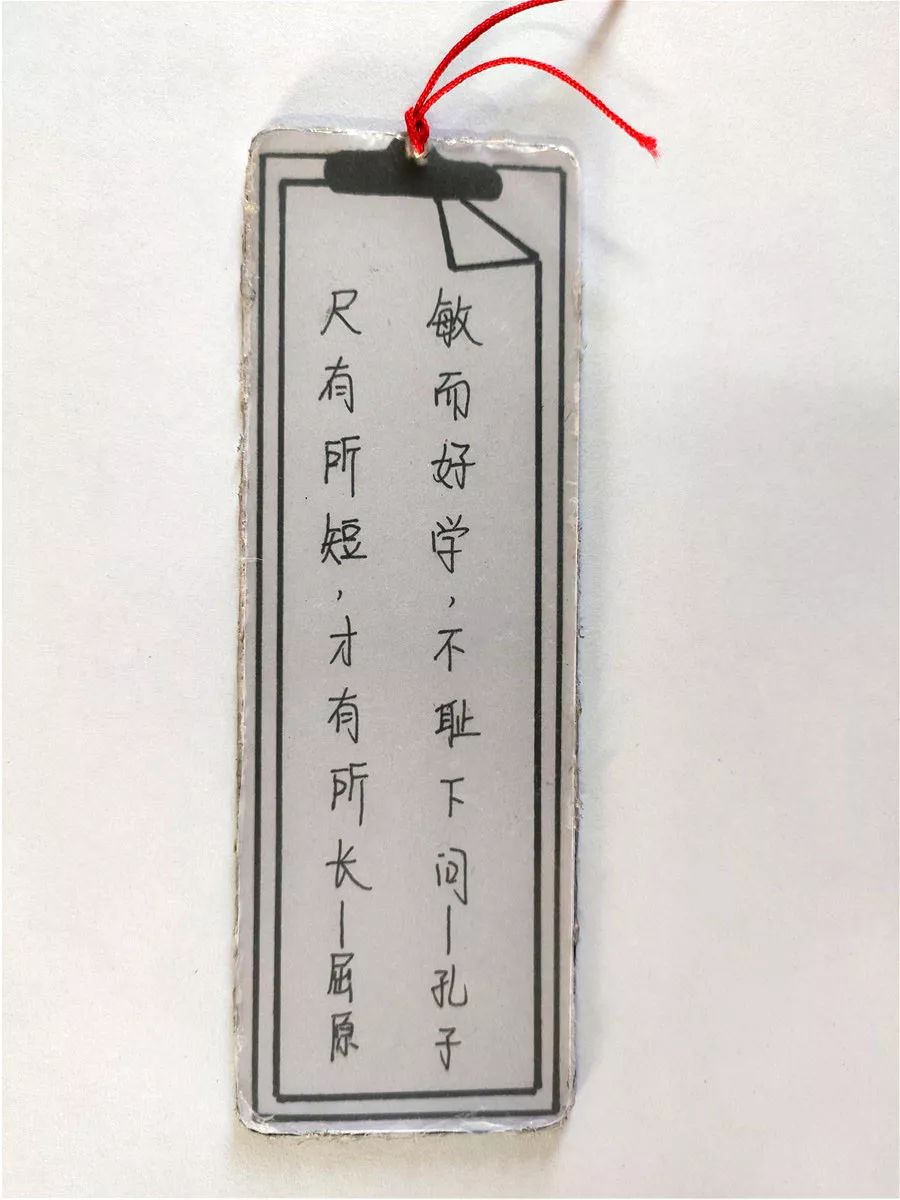 敏而好学，不耻下问—孔子
尺有所短，才有所长—屈原